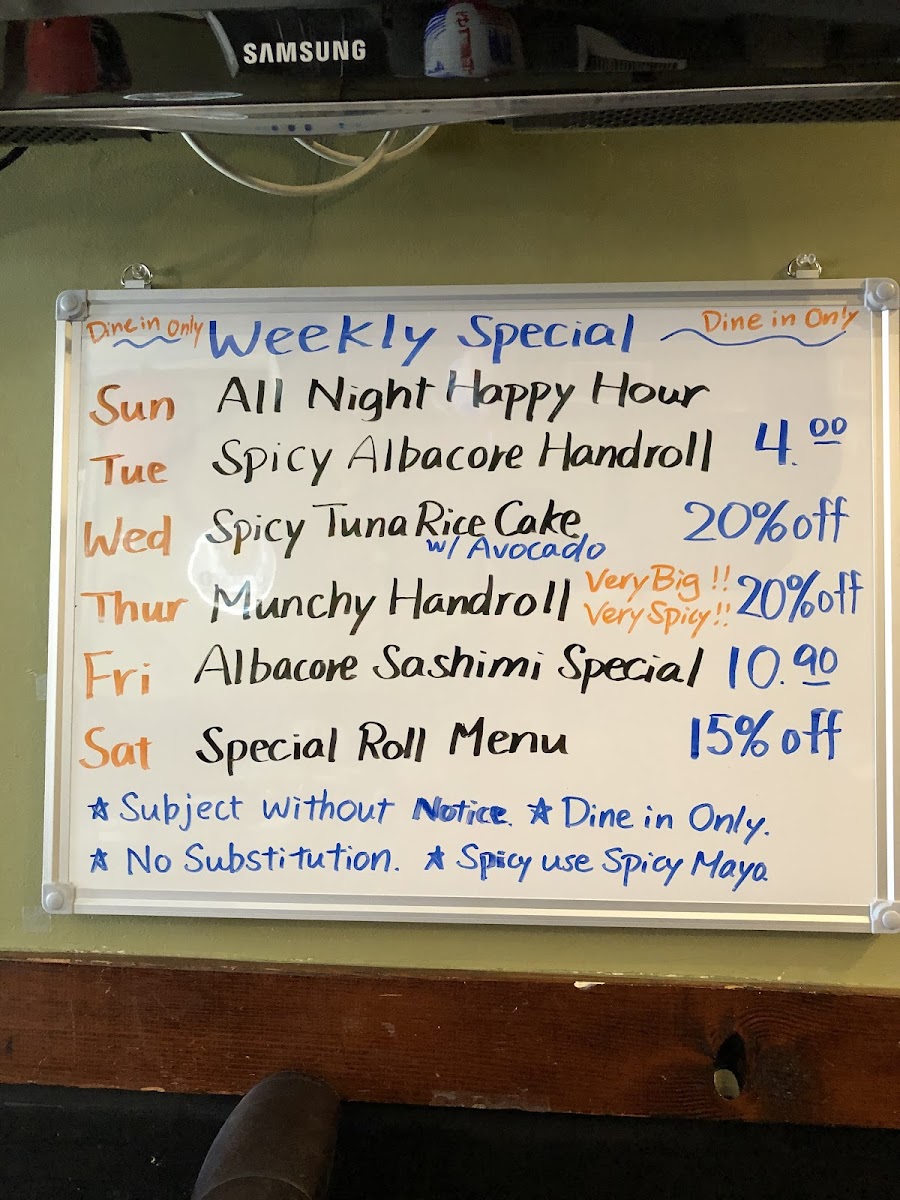 SAMSUNG
Dine in Only Weekly Special Dine in Only
Sun All Night Happy Hour
Tue Spicy Albacore Handroll 4.00
Wed Spicy Tuna Rice Cake 20% off
w/ Avocado
Thur Munchy Handroll Very Big !! 20% off
Very Spicy!!
Fri Albacore Sashimi Special 10.90
Sat Special Roll Menu 15% off
☆ Subject without Notice. ☆ Dine in Only.
☆ No Substitution. ☆ Spicy use Spicy Mayo